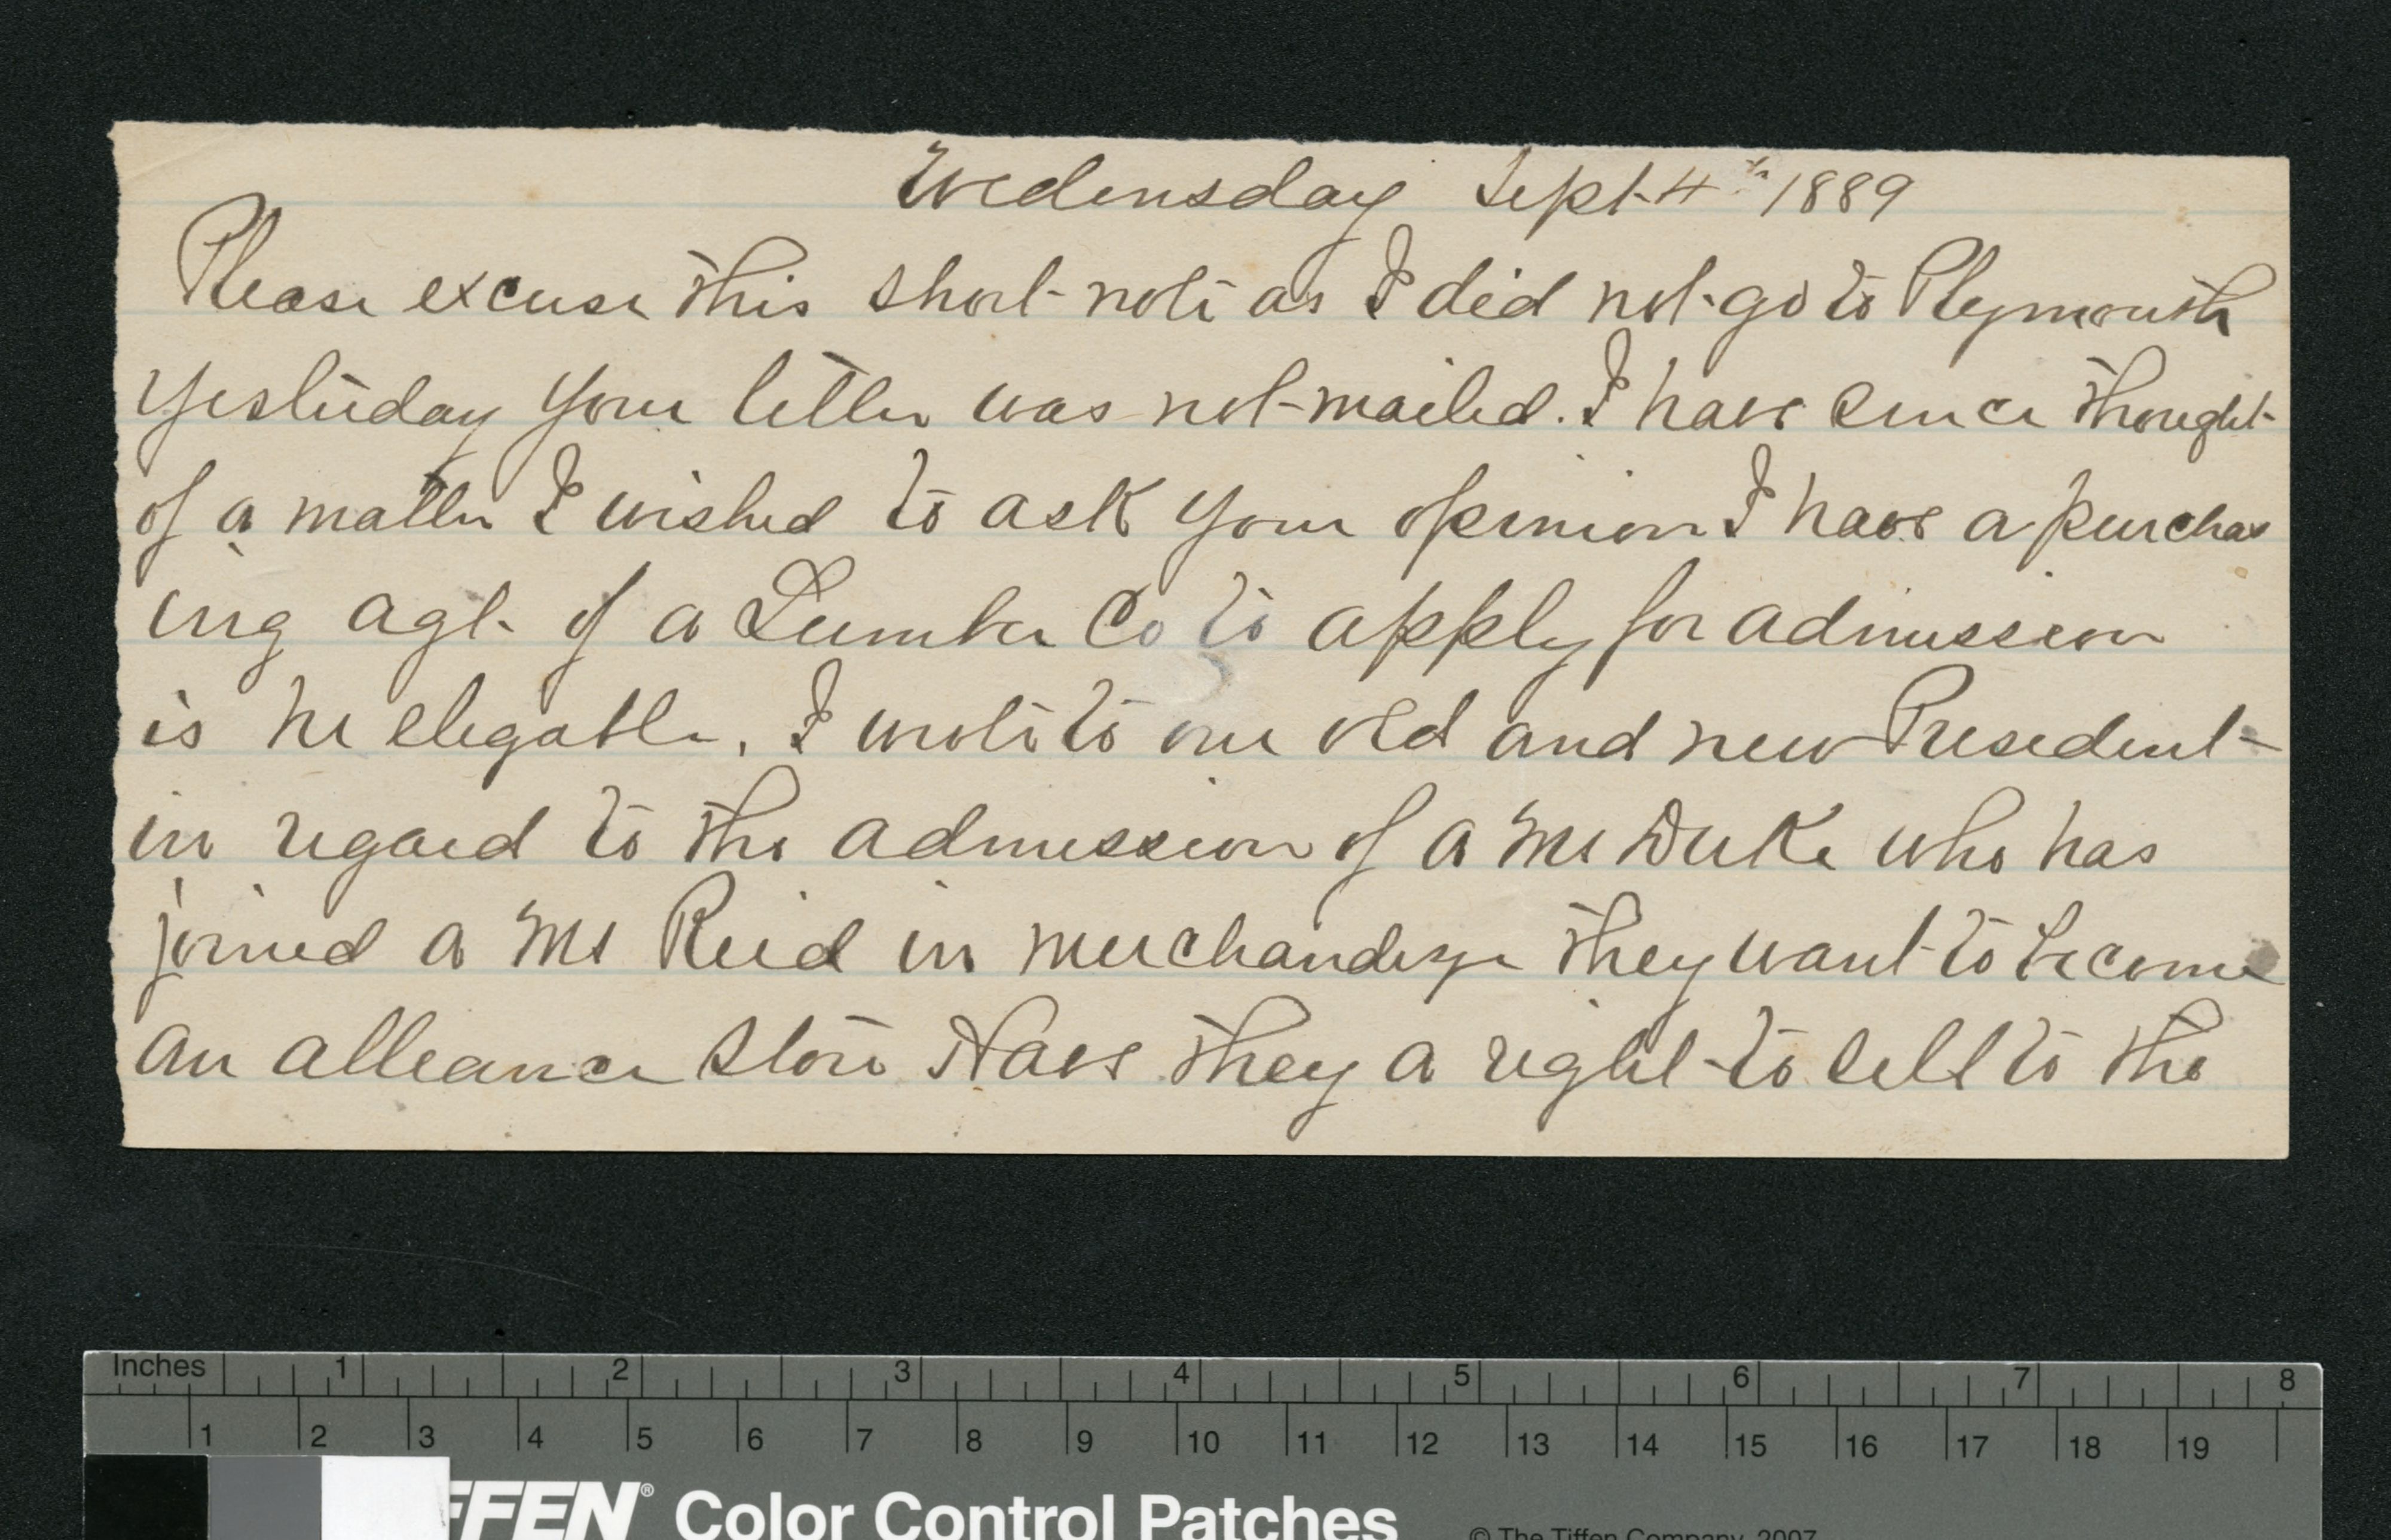 Wedensday Sept 4th 1889
Please excuse this short note as I did not go to Plymouth
yesterday your letter was not mailed. I have since thought
of a matter I wished to ask your opinion I have a purchas
ing agt. of a Lumber Co to apply for admission
is he elegable. I wrote to our old and new President
in regard to the admission of a Mr Duke who has
joined a Mr Reid in merchandize they want to become
an alleance store Have they a right to sell to the
Inches 1 2 3 4 5 6 7 8
1 2 3 4 5 6 7 8 9 10 11 12 13 14 15 16 17 18 19
FFEN® Color Control Patches © The Tiffen Company, 2007